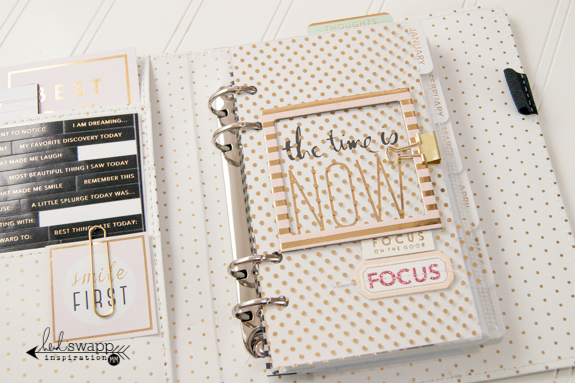 THOUGHTS
JANUARY
FEBRUARY
BEST
NT TO NOTICE
I AM DREAMING...
MY FAVORITE DISCOVERY TODAY
AT MADE ME LAUGH
MOST BEAUTIFUL THING I SAW TODAY
HAT MADE ME SMILE
REMEMBER THIS
USE
A LITTLE SPLURGE TODAY WAS
TING WITH:
WARD TO:
BEST THING I ATE TODAY:
smile
FIRST
the time is
NOW
FOCUS
ON THE GOOD
FOCUS
heidi SWAPP
inspiration